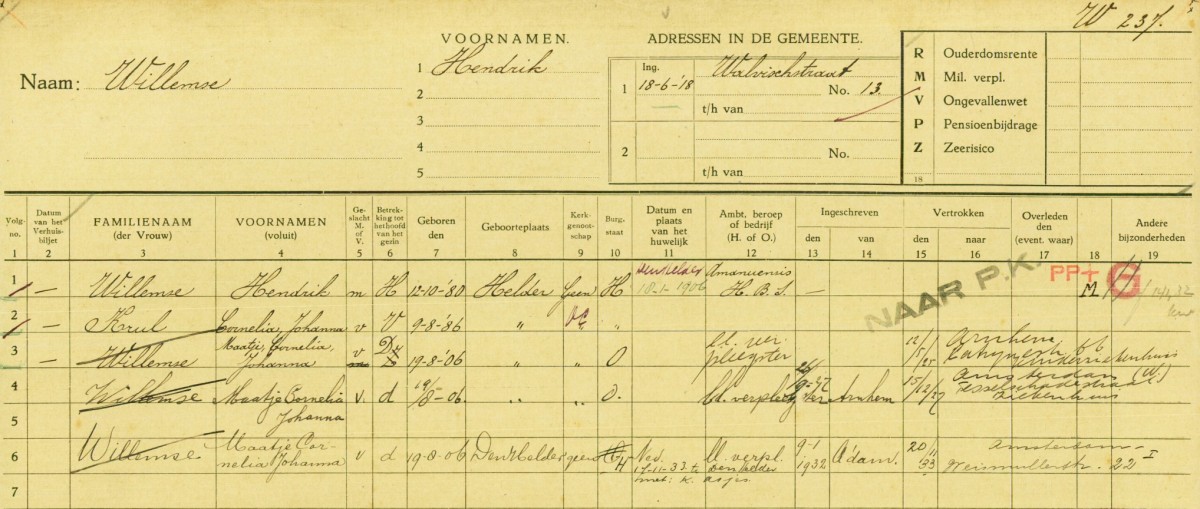 W 237.
Naam: Willemse
VOORNAMEN.
1 Hendrik
2
3
4
5
ADRESSEN IN DE GEMEENTE.
1 Ing. 18-6-'18 Walvischstraat
No. 13.
t/h van
2
No.
t/h van
R Ouderdomsrente
M Mil. verpl.
V Ongevallenwet
P Pensioenbijdrage
Z Zeerisico
18
Volg-no. Datum van het Verhuis-biljet FAMILIENAAM (der Vrouw) VOORNAMEN (voluit) Ge-slacht M. of V. Betrek-king tot het hoofd van het gezin Geboren den Geboorteplaats Kerk-genoot-schap Burg. staat Datum en plaats van het huwelijk Ambt, beroep of bedrijf (H. of O.) Ingeschreven den van Vertrokken den naar Overleden den (event. waar) Andere bijzonderheden
1 2 3 4 5 6 7 8 9 10 11 12 13 14 15 16 17 18 19
NAAR P.K. PP+ G
1 — Willemse Hendrik m H 12-10-'80 Helder Geen H Den Helder 10-1-1906 Amanuensis H.B.S. — M
2 — Krul Cornelia, Johanna v V 9-8-'86 " "
3 — Willemse Maatje, Cornelia, Johanna v D 19-8-'06 " O ll. ver. pleegster 12/5/25 Arnhem
4 Willemse Maatje Cornelia Johanna v. d 19/8-06. " " O. ll. verpleegster Arnhem 15/12/27 Amsterdam (W.) Tesselschadestraat Ziekenhuis
5
6 Willemse Maatje Cornelia Johanna v d 19-8-06 Den Helder geen H Ned. 17-11-33 met: K. ll. verpl. Den Helder 9-1 1932 A'dam. 20/11 33 Amsterdam Weismullerstr. 22 I
7